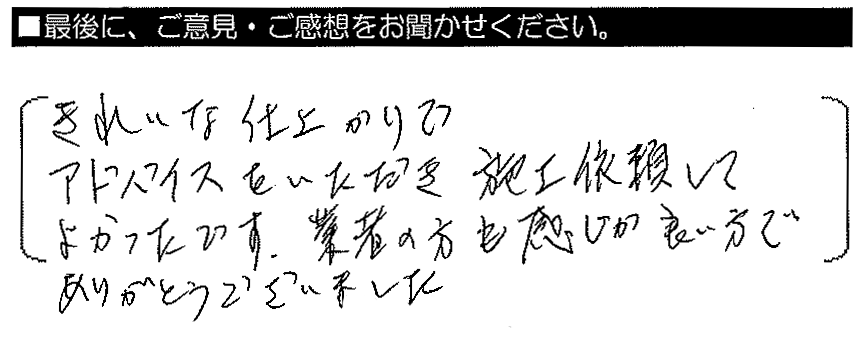 ■最後に、ご意見・ご感想をお聞かせください。
きれいな仕上がりで
アドバイスをいただき 施工依頼して
よかったです. 業者の方も感じが良い方で
ありがとうございました